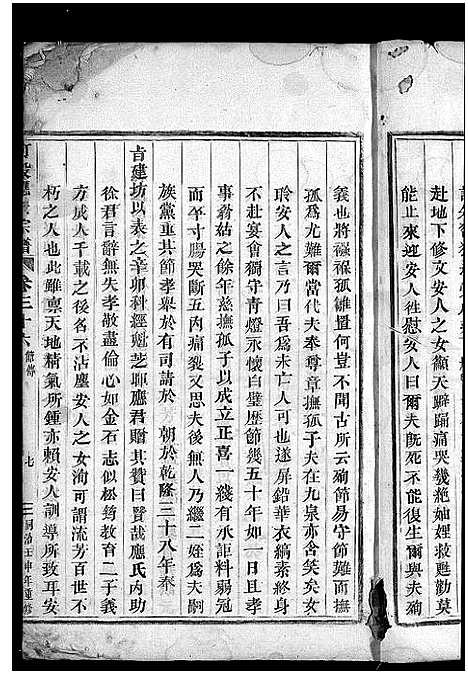 赴地下修文安人籲天躃踊痛哭幾絶妯娌救甦勸莫
能止來迎安人徃慰安人曰爾夫旣死不能復生爾與夫殉
義也將襁褓孤雛置何豈不聞古所云殉節易守節難而撫
孤爲尤難爾當代夫奉尊章撫孤子夫在九泉亦含笑矣女
聆安人之言乃曰吾爲爾不可也遂屏鉛華衣縞素終身
不赴宴會獨守靑燈永懷白璧歷節幾五十年如一日且孝
事孀姑之餘年慈撫孤子以成立正喜一綫有承詎料弱冠
而午寸腸哭斷五内痛裂又思夫後無人乃繼二姪爲夫嗣
族黨重其節孝舉於有司請於 朝於乾隆三十八年奉
旨建坊以表之辛卯科經魁芝暉應君贈其贊曰賢哉應氏内助
徐君言辭無失孝敬盡倫心如金石志似松筠敎育二子義
方成人千載之後名不沾塵安人之女洵可謂流芳百世不
朽之人也此雖禀天地精氣所鍾亦賴安人訓導所致耳安
宗譜 卷三十六 傳
七 同治壬申年重修